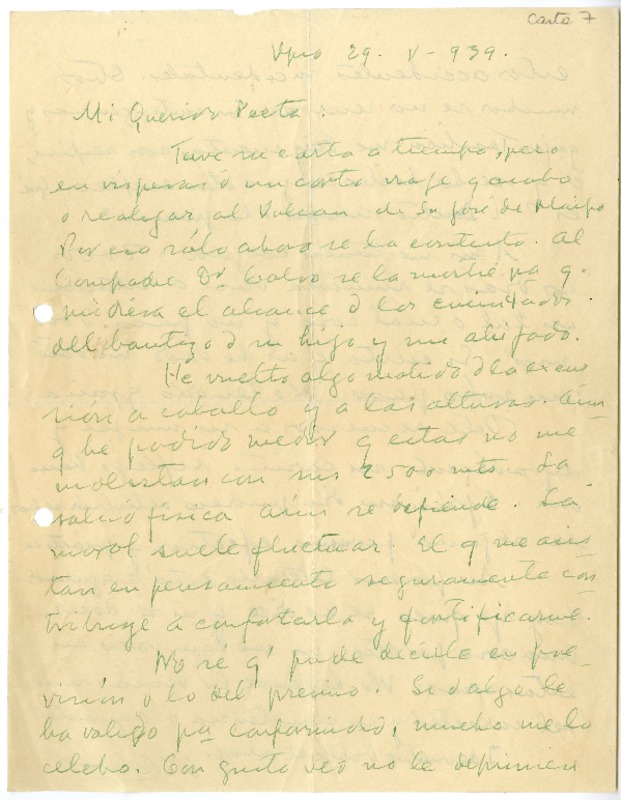 Carta 7
Vpso 29. V-939.
Mi Querido Poeta.
Tuve su carta a tiempo, pero
en visperas d un corto viaje q acabo
d realizar al Volcan de Sn José de Maipo
Por eso sólo ahora se la contesto. Al
Compadre Dr. Calvo se la mostré pa q
midiera el alcance d los
del bautizo d su hijo y mi ahijado.
He vuelto algo molido d la excur
sión a caballo y a las alturas. Aun
q he podido medir q estas no me
molestan con sus 2500 mts. La
salud fisica aún se defiende. La
moral suele fluctuar. El q me asis
tan en pensamiento seguramente con
tribuye a confortarla y fortificarme.
No sé q' pude decirle en pre
visión d lo del premio. Si d algo le
ha valido pa conformidad, mucho me lo
celebro. Con gusto veo no le deprimen